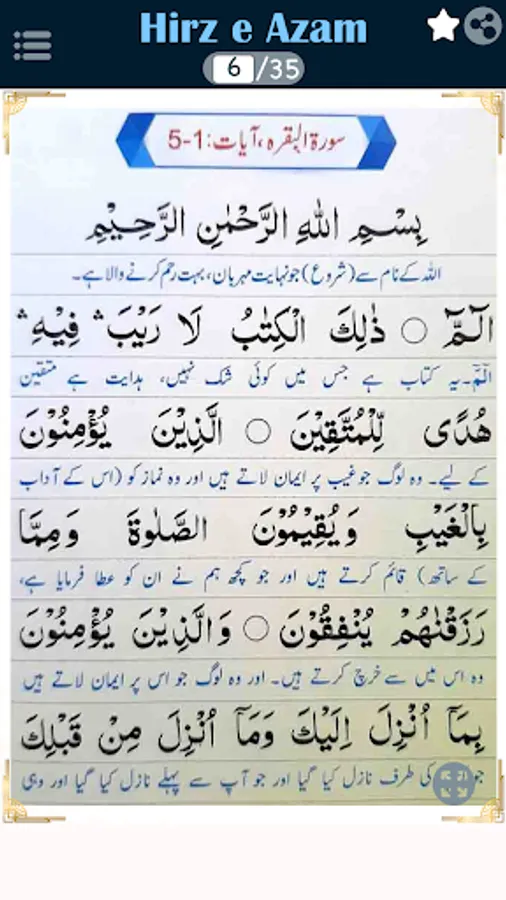 Hirz e Azam
6/35
سورۃ البقرہ، آیات: 1-5
بِسْمِ اللّٰهِ الرَّحْمٰنِ الرَّحِيْمِ
اللہ کے نام سے (شروع) جو نہایت مہربان، بہت رحم کرنے والا ہے۔
الٓمّٓ ○ ذٰلِكَ الْكِتٰبُ لَا رَيْبَ ۛ فِيْهِ ۛ
الٓمّٓ۔ یہ کتاب ہے جس میں کوئی شک نہیں، ہدایت ہے متقین
هُدًى لِّلْمُتَّقِيْنَ ○ الَّذِيْنَ يُؤْمِنُوْنَ
کے لیے۔ وہ لوگ جو غیب پر ایمان لاتے ہیں اور وہ نماز کو (اس کے آداب
بِالْغَيْبِ وَيُقِيْمُوْنَ الصَّلٰوةَ وَمِمَّا
کے ساتھ) قائم کرتے ہیں اور جو کچھ ہم نے ان کو عطا فرمایا ہے،
رَزَقْنٰهُمْ يُنْفِقُوْنَ ○ وَالَّذِيْنَ يُؤْمِنُوْنَ
وہ اس میں سے خرچ کرتے ہیں۔ اور وہ لوگ جو اس پر ایمان لاتے ہیں
بِمَآ اُنْزِلَ اِلَيْكَ وَمَآ اُنْزِلَ مِنْ قَبْلِكَ
جو کی طرف نازل کیا گیا اور جو آپ سے پہلے نازل کیا گیا اور وہی